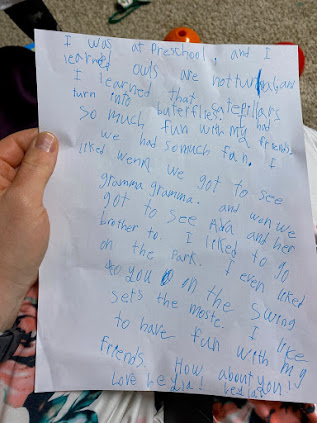 I was at Preschool. and I
learned owls are notturnal, and
I learned that catepillars
turn into buterflies. I had
so much fun with my friends
we had so much fun. I
liked wenn we got to see
gramma gramma. and wen we
got to see Ava and her
brother to. I liked to go
on the Park. I even liked
to you on the swing
sets the moste. I like
to have fun with my
friends. How about you!
love